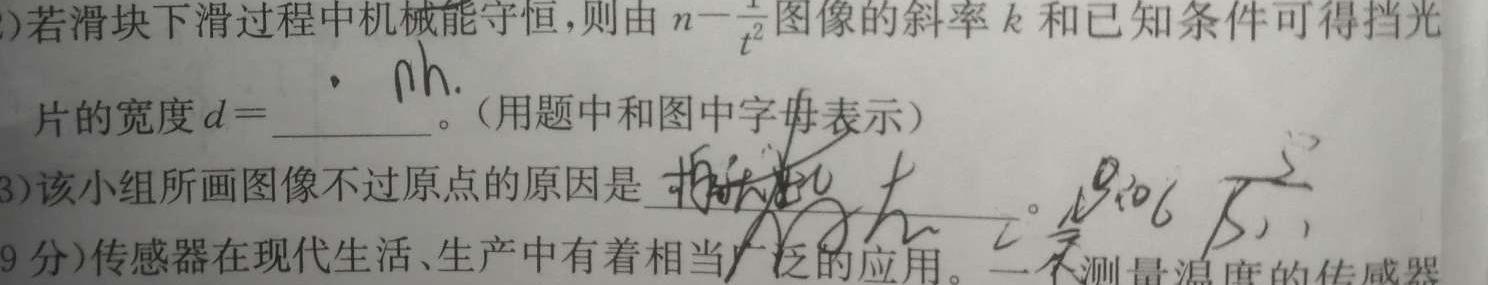 )若滑块下滑过程中机械能守恒,则由 n—1/t² 图像的斜率 k 和已知条件可得挡光
nh.
片的宽度 d=________。(用题中和图中字母表示)
3)该小组所画图像不过原点的原因是________。
9 分)传感器在现代生活、生产中有着相当广泛的应用。一个测量温度的传感器